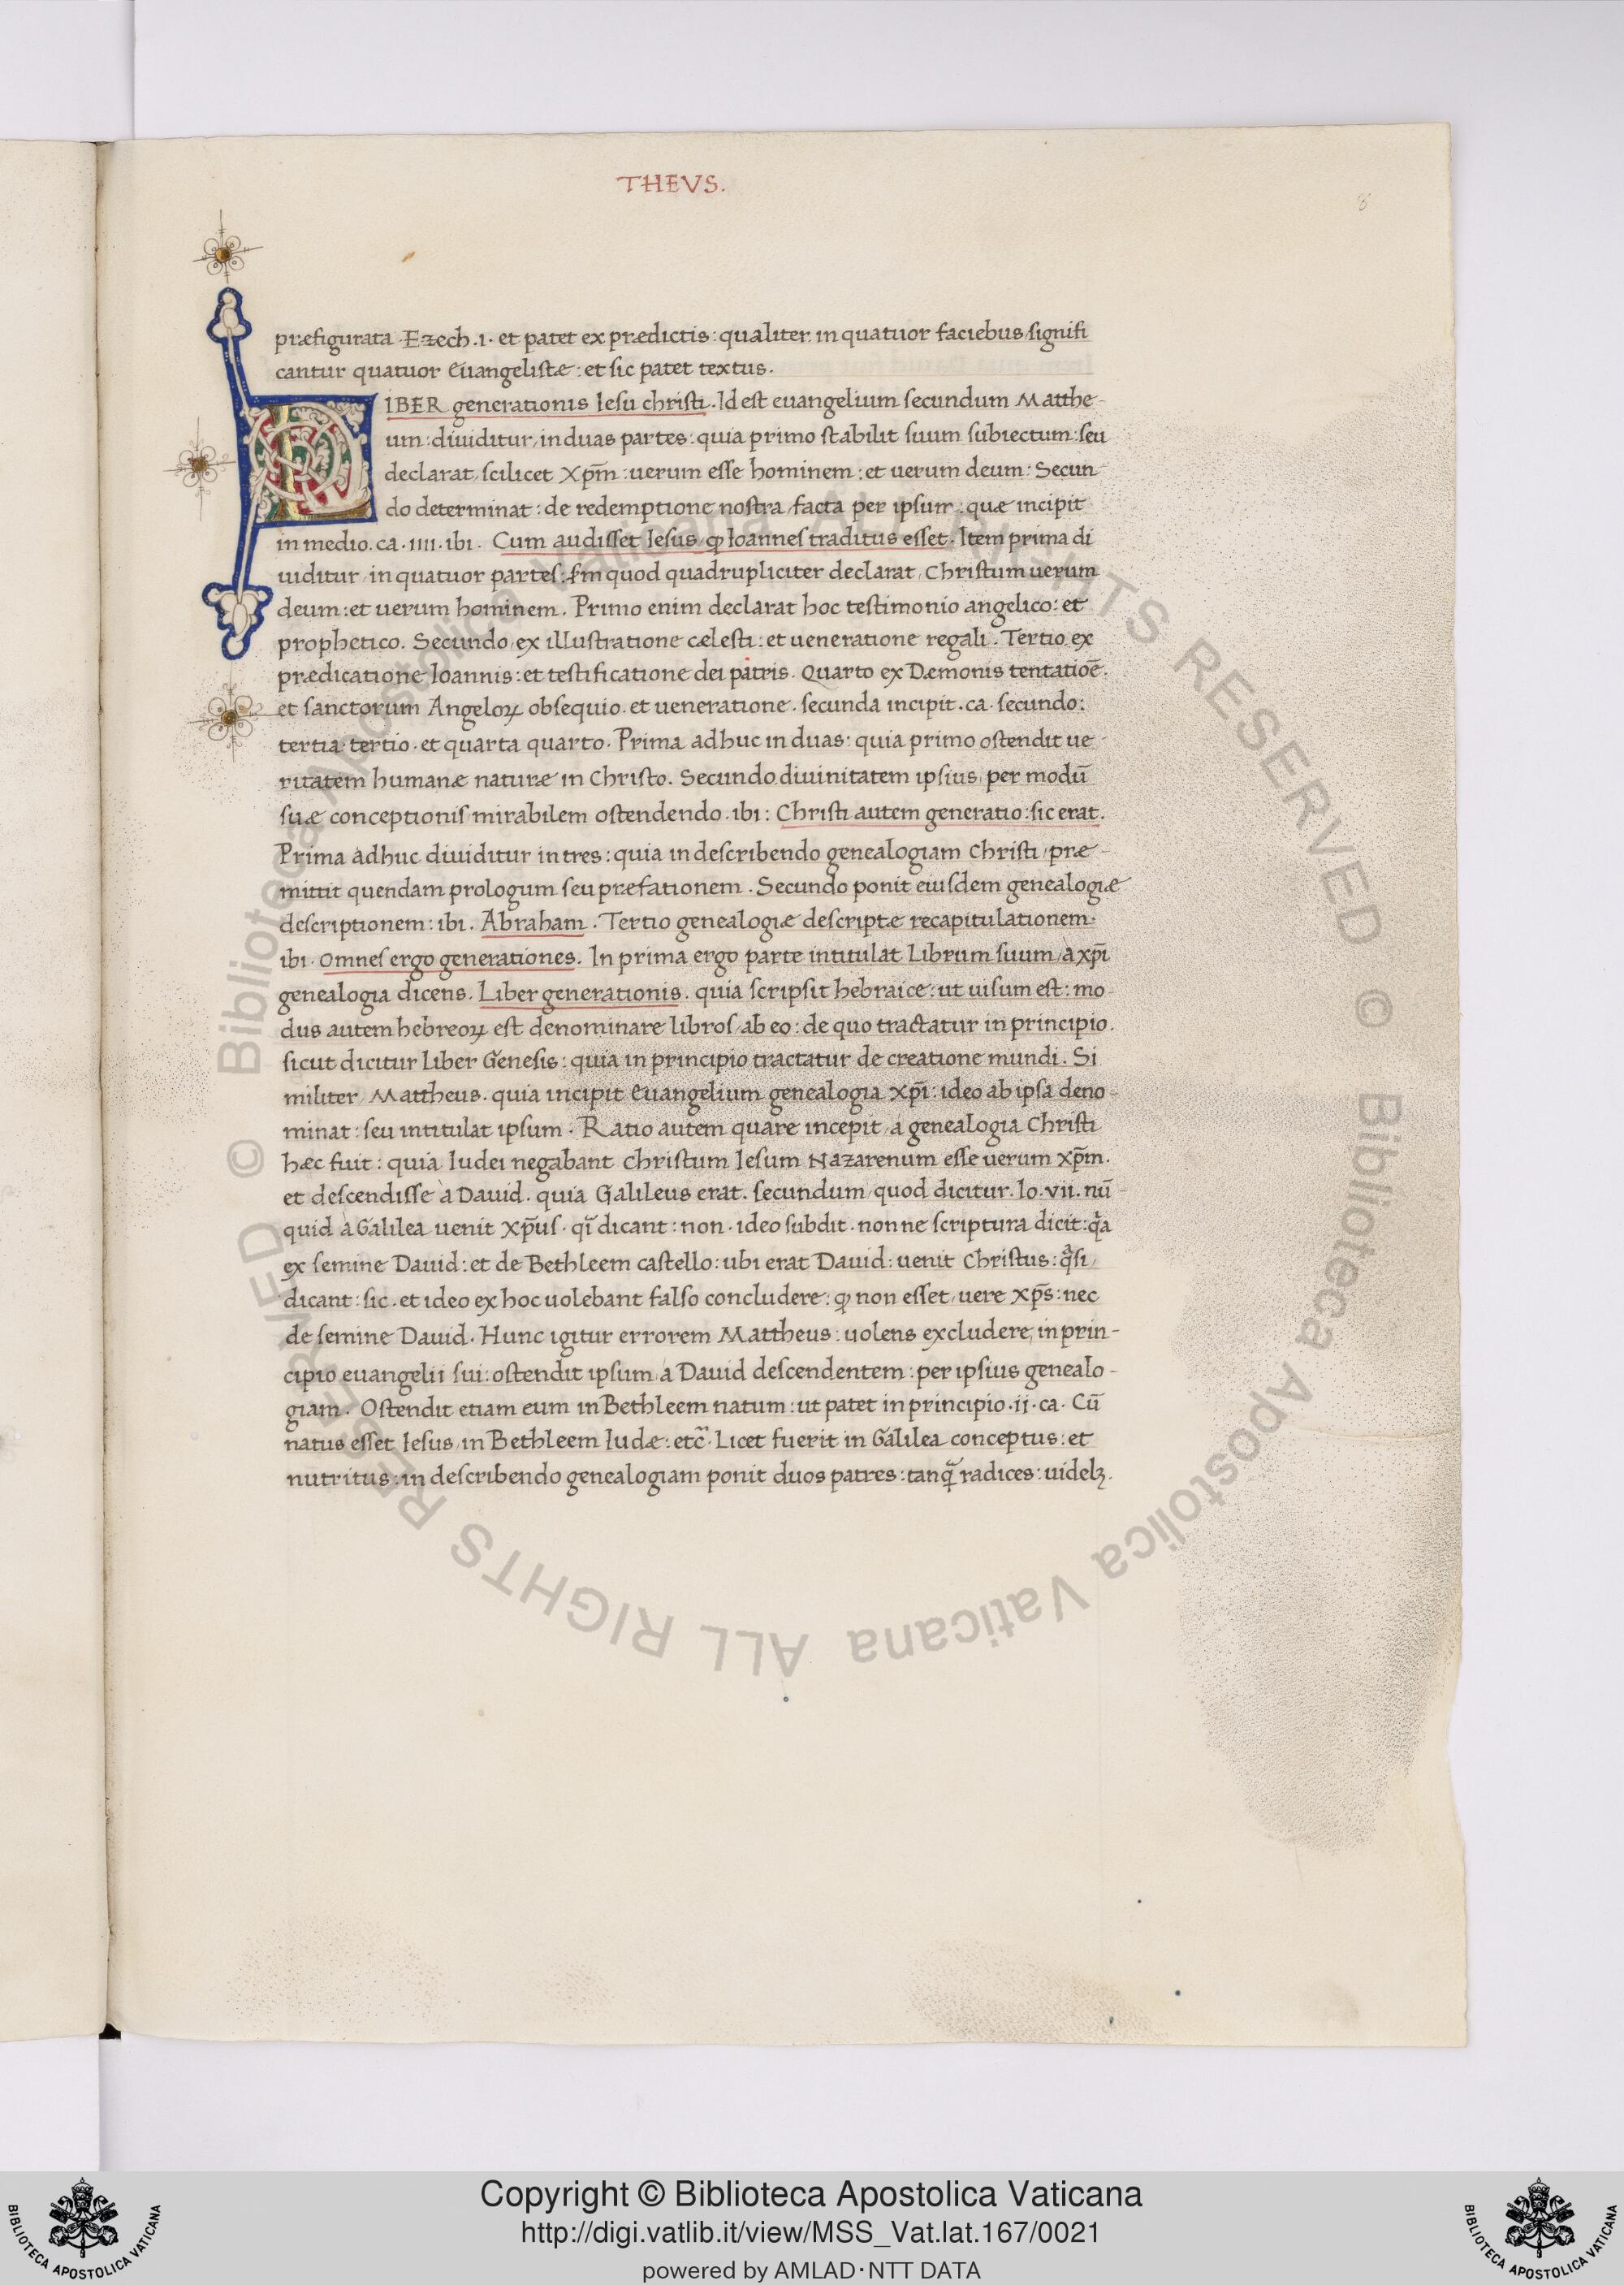 THEVS.
8
præfigurata. Ezech.1. et patet ex prædictis: qualiter in quatuor faciebus, signifi
cantur quatuor Euangelistæ: et sic patet textus.
LIBER generationis Iesu christi. Id est euangelium secundum Matthe-
um: diuiditur, in duas partes: quia primo stabilit suum subiectum: seu
declarat, scilicet xp̄m: uerum esse hominem: et uerum deum: Secun
do determinat: de redemptione nostra, facta per ipsum: quæ incipit
in medio. ca. IIII. ibi. Cum audisset Iesus, ꝙ Ioannes traditus esset. Item prima di
uiditur, in quatuor partes: s̄m quod quadrupliciter declarat, Christum uerum
deum: et uerum hominem. Primo enim declarat hoc testimonio angelico: et
prophetico. Secundo, ex illustratione cælesti: et ueneratione regali. Tertio, ex
prædicatione Ioannis: et testificatione dei patris. Quarto ex Dæmonis tentatiōe.
et sanctorum Angeloꝝ obsequio. et ueneratione. secunda incipit. ca. secundo:
tertia. tertio. et quarta quarto. Prima adhuc in duas: quia primo ostendit ue-
ritatem humanæ naturæ in Christo. Secundo diuinitatem ipsius, per modū
suæ conceptionis mirabilem ostendendo. ibi: Christi autem generatio: sic erat.
Prima adhuc diuiditur in tres: quia in describendo genealogiam Christi, præ-
mittit quendam prologum seu prefationem. Secundo ponit eiusdem genealogiæ
descriptionem: ibi. Abraham. Tertio genealogiæ descriptæ recapitulationem.
ibi. Omnes ergo generationes. In prima ergo parte intitulat Librum suum, a xp̄i
genealogia dicens. Liber generationis. quia scripsit hebraice: ut uisum est: mo-
dus autem hebreoꝝ est denominare libros, ab eo: de quo tractatur in principio.
sicut dicitur Liber Genesis: quia in principio tractatur de creatione mundi. Si
militer, Mattheus. quia incipit Euangelium genealogia xp̄i: ideo ab ipsa deno-
minat: seu intitulat ipsum. Ratio autem quare incepit, a genealogia Christi
hæc fuit: quia Iudei negabant Christum Iesum Nazarenum esse uerum xp̄m.
et descendisse a Dauid. quia Galileus erat. secundum, quod dicitur. Io. vii. nū-
quid a Galilea uenit xp̄us. qī dicant: non. ideo subdit. nonne scriptura dicit: qͣa
ex semine Dauid: et de Bethleem castello: ubi erat Dauid: uenit Christus: qͣsi,
dicant: sic. et ideo ex hoc uolebant falso concludere: ꝙ non esset, uere xp̄s: nec
de semine Dauid. Hunc igitur errorem Mattheus: uolens excludere, in prin-
cipio euangelii sui: ostendit ipsum, a Dauid descendentem: per ipsius genealo-
giam. Ostendit etiam eum in Bethleem natum: ut patet in principio. ii. ca. Cū
natus esset Iesus, in Bethleem Iudæ: etc̄. Licet fuerit in Galilea conceptus: et
nutritus: in describendo genealogiam ponit duos patres: tanq̄ radices: uidelꝫ.
© Biblioteca Apostolica Vaticana ALL RIGHTS RESERVED © Biblioteca Apostolica Vaticana ALL RIGHTS RESERVED
Copyright © Biblioteca Apostolica Vaticana
http://digi.vatlib.it/view/MSS_Vat.lat.167/0021
powered by AMLAD·NTT DATA
BIBLIOTECA APOSTOLICA VATICANA
BIBLIOTECA APOSTOLICA VATICANA